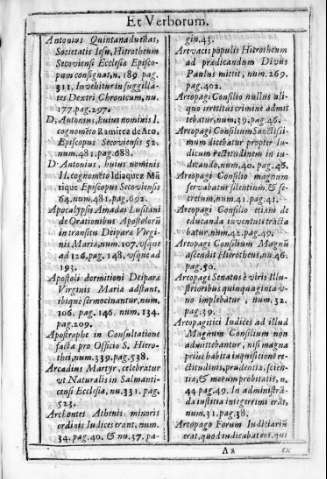 Et Verborum.
Antonius Quintanaduenas,
Societatis Iesu, Hierotheum
Segoviensi Ecclesiæ Episco-
pum consignat, n. 189. pag.
311. Invehitur in suggilla-
tes Dextri Chronicum, nu.
177. pag. 297.
D. Antonius, huius nominis I.
cognomēto Ramirez de Aro,
Episcopus Segoviensis 52.
num. 481. pag. 688.
D. Antonius, huius nominis
II. cognomēto Idiaquez Mā
rique Episcopus Segoviensis
64. num. 481. pag. 692.
Apocalypsis Amadæi Lusitani
de Orationibus Apostolorū
in transitu Deiparæ Virgi-
nis Mariæ, num. 107. vsque
ad 126. pag. 148. vsque ad
193.
Apostoli dormitioni Deiparæ
Virginis Mariæ adstant,
ibique sermocinantur, num.
106. pag. 146. num. 134.
pag. 209.
Apostrophe in Consultatione
facta pro Officio S. Hiero-
thei, num. 339. pag. 538.
Arcadius Martyr, celebratur
vt Naturalis in Salmanti-
censi Ecclesia, nu. 331. pag.
523.
Archontes Athenis minoris
ordinis Iudices erant, num.
34. pag. 40. & nu. 37. pa-
gin. 45.
Arevacis populis Hierotheum
ad prædicandum Divus
Paulus mittit, num. 269.
pag. 402.
Areopagi Consilio nullus ali-
quo rectitus crimine admit
tebatur, num. 39. pag. 46.
Areopagi Consilium Sanctissi-
mum dicebatur propter Iu-
dicum rectitudinem in iu-
dicando, num. 40. pag. 48.
Areopagi Consilio magnum
servabatur silentium, & se-
cretum, num. 41. pag. 41.
Areopagi Consilio etiam de
educanda iuventute tracta
batur, num. 42. pag. 49.
Areopagi Consilium Magnū
ascendit Hierotheus, nu. 46.
pag. 50.
Areopagi Senatus è viris Illu-
strioribus quinquaginta v-
no implebatur, num. 32.
pag. 39.
Areopagitici Iudices ad illud
Magnum Consilium non
admittebantur, nisi magna
prius habita inquisitione re-
ctitudinis, prudentiæ, scien-
tiæ, & morum probitatis, n.
44. pag. 49. In administrā-
da iustitia integerrimi erāt,
num. 31. pag. 38.
Areopago Forum Iudiciariū
erat, quod iudicabat et qui
Aa
ex